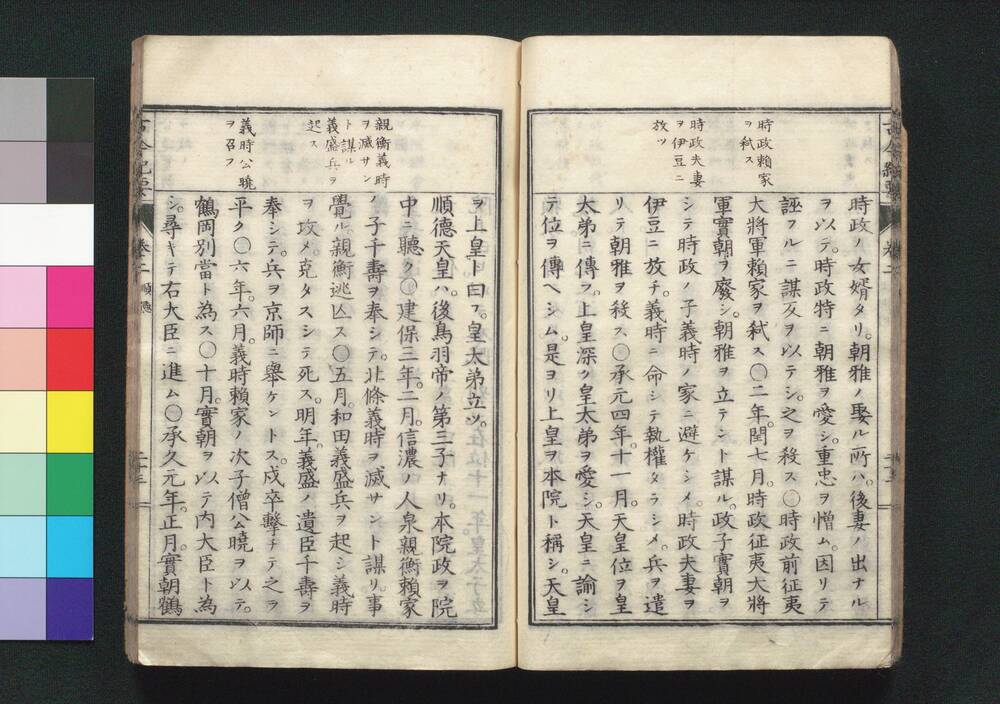 時政賴家
ヲ弑ス
時政夫妻
ヲ伊豆ニ
放ツ
時政ノ女婿タリ。朝雅ノ娶ル所ハ。後妻ノ出ナル
ヲ以テ。時政特ニ朝雅ヲ愛シ。重忠ヲ憎ム。因リテ
誣フルニ謀反ヲ以テシ。之ヲ殺ス〇時政前征夷
大將軍賴家ヲ弑ス〇二年。閏七月。時政征夷大將
軍實朝ヲ廢シ。朝雅ヲ立テント謀ル。政子實朝ヲ
シテ時政ノ子義時ノ家ニ避ケシメ。時政夫妻ヲ
伊豆ニ放チ。義時ニ命シテ執權タラシメ。兵ヲ遣
リテ朝雅ヲ殺ス〇承元四年。十一月。天皇位ヲ皇
太弟ニ傳フ。上皇深ク皇太弟ヲ愛シ。天皇ニ諭シ
テ位ヲ傳ヘシム。是ヨリ上皇ヲ本院ト稱シ。天皇
親衡義時
ヲ滅サン
ト謀ル
義盛兵ヲ
起ス
義時公曉
ヲ召フ
ヲ上皇ト曰フ。皇太弟立ツ。
順德天皇ハ。後鳥羽帝ノ第三子ナリ。本院政ヲ院
中ニ聽ク〇建保三年。二月。信濃ノ人泉親衡賴家
ノ子千壽ヲ奉シテ。北條義時ヲ滅サント謀リ。事
覺ル。親衡逃亡ス〇五月。和田義盛兵ヲ起シ義時
ヲ攻メ。克タスシテ死ス。明年。義盛ノ遺臣千壽ヲ
奉シテ。兵ヲ京師ニ舉ケントス。戍卒擊チテ之ヲ
平ク〇六年。六月。義時賴家ノ次子僧公曉ヲ以テ。
鶴岡別當ト為ス〇十月。實朝ヲ以テ內大臣ト為
シ。尋キテ右大臣ニ進ム〇承久元年。正月。實朝鶴
卷二
順德
二十三